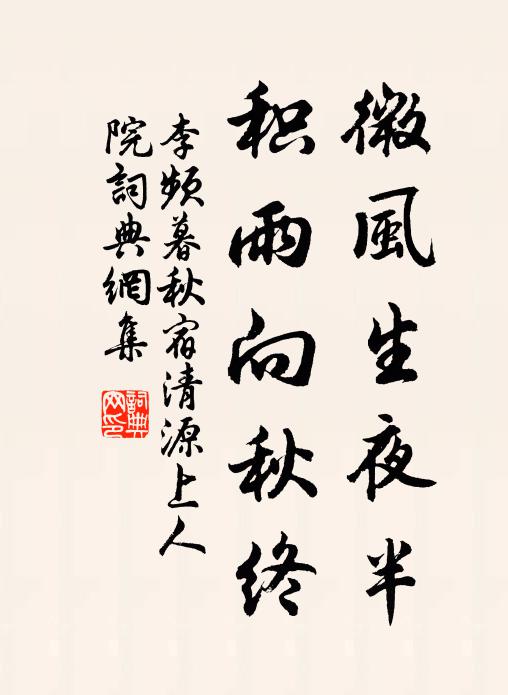 微風生夜半
积雨向秋終
李频暮秋宿清源上人
院詞典網集
詞典
网印